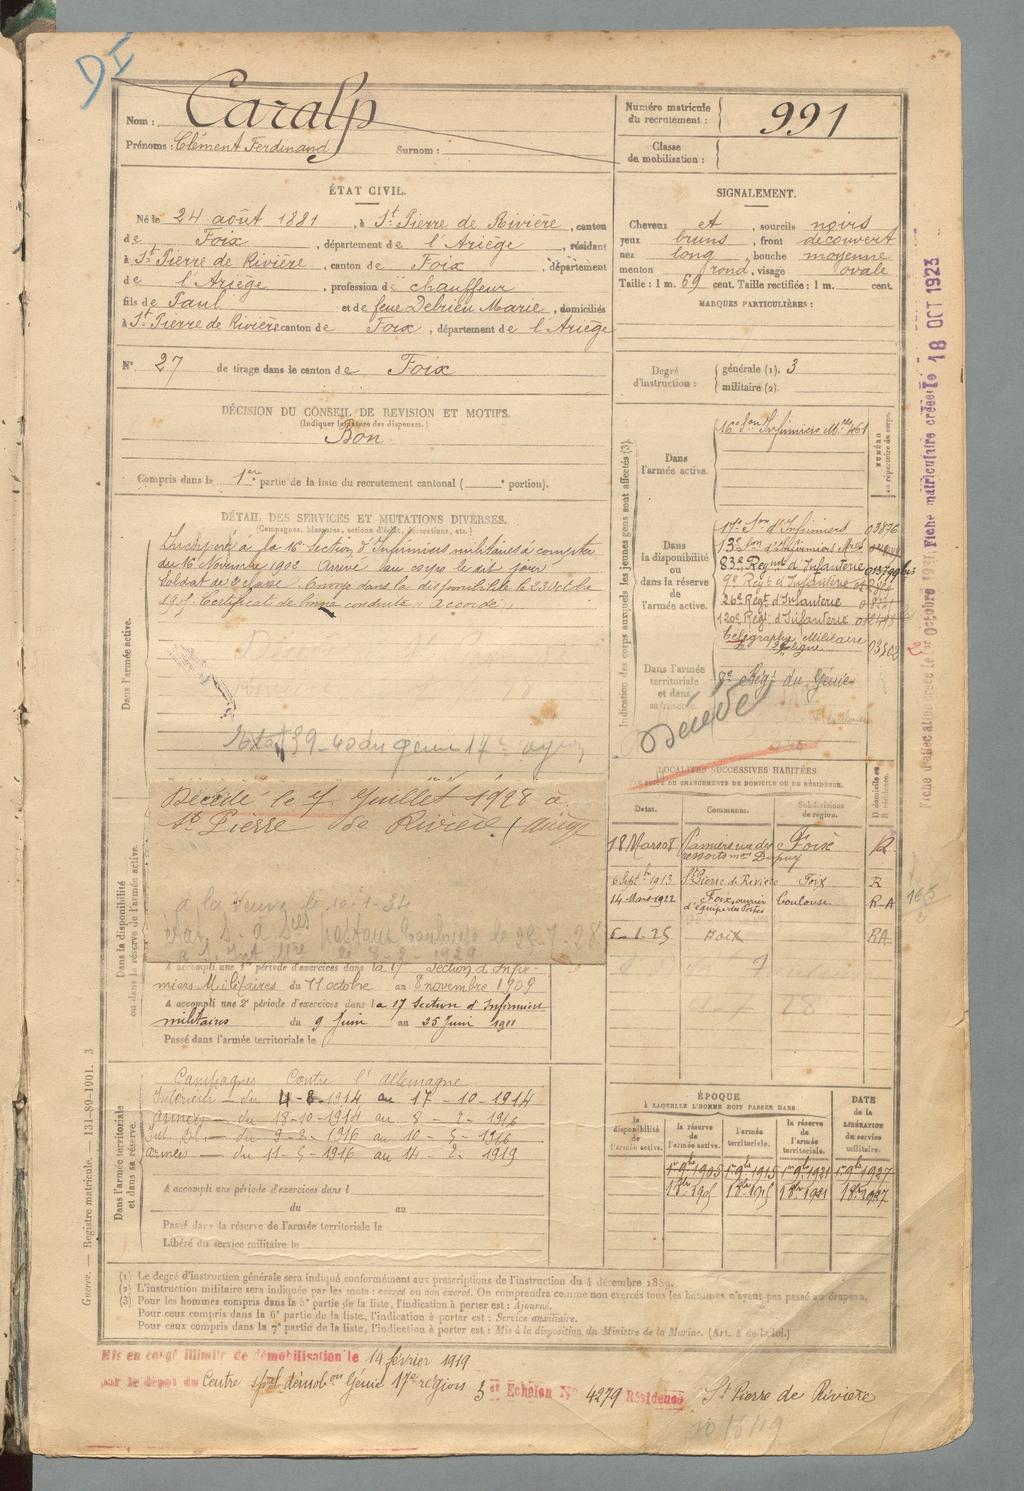 DI
Nom : Caralp
Prénoms : Clément Ferdinand Surnom :
Numéro matricule du recrutement : 991
Classe de mobilisation :
ÉTAT CIVIL.
Né le 24 août 1881, à St Pierre de Rivière, canton
de Foix, département de l'Ariège, résidant
à St Pierre de Rivière, canton de Foix, département
de l'Ariège, profession de chauffeur
fils de Paul et de feue Debrieu Marie, domiciliés
à St Pierre de Rivière canton de Foix, département de l'Ariège
N° 27 de tirage dans le canton de Foix
SIGNALEMENT.
Cheveux et, sourcils noirs
yeux bruns, front découvert
nez long, bouche moyenne
menton rond, visage ovale
Taille : 1 m. 69 cent. Taille rectifiée : 1 m. cent.
MARQUES PARTICULIÈRES :
Degré d'instruction : générale (1). 3
militaire (2).
DÉCISION DU CONSEIL DE REVISION ET MOTIFS.
(Indiquer la nature des dispenses.)
Bon
Compris dans le 1ere partie de la liste du recrutement cantonal ( portion).
DÉTAIL DES SERVICES ET MUTATIONS DIVERSES.
(Campagnes, blessures, actions d'éclat, décorations, etc.)
Dans l'armée active.
Incorporé à la 16e Section d'Infirmiers militaires à compter
du 16 Novembre 1902. Arrivé au corps le dit jour
soldat de 2e classe. Envoyé dans la disponibilité le
Certificat de bonne conduite "Accordé"
39-40 du génie 17e
Décédé le 7 Juillet 1928 à
St Pierre de Rivière (Ariège
à la Veuve le
Dans la disponibilité ou dans la réserve de l'armée active.
A accompli une 1re période d'exercices dans la 17 Section d'Infir-
miers Militaires du 11 octobre au 8 novembre 1909
A accompli une 2e période d'exercices dans la 17 Section d'Infirmiers
militaires du 9 Juin au 25 Juin 1911
Passé dans l'armée territoriale le
Dans l'armée territoriale et dans sa réserve.
Campagnes Contre l'Allemagne
Intérieur - du 4-8-1914 au 17-10-1914
armées - du 18-10-1914 au 8-2-1916
du 9-2-1916 au 10-5-1916
armées - du 11-5-1916 au 14-2-1919
A accompli une période d'exercices dans l
du au
Passé dans la réserve de l'armée territoriale le
Libéré du service militaire le
Indication des corps auxquels les jeunes gens sont affectés (3).
NUMÉRO au répertoire du corps.
Dans l'armée active.
16e Son Infirmiers Mres 461
Dans la disponibilité ou dans la réserve de l'armée active.
17e Son d'Infirmiers 03876
13e Son d'Infirmiers
83e Regmt d'Infanterie
9e Regt d'Infanterie
26e Regt d'Infanterie
120e Regt d'Infanterie
Télégraphie Militaire
Dans l'armée territoriale et dans sa réserve.
8e Regt du Génie
Décédé
LOCALITÉS SUCCESSIVES HABITÉES
PAR SUITE DE CHANGEMENTS DE DOMICILE OU DE RÉSIDENCE.
Dates. Communes. Subdivisions de région. D domicile ou R résidence.
18 Mars 08 Pamiers Foix R
6 Septbre 1913 St Pierre de Rivière Foix R
14 Mars 1922 Foix, ouvrier d'Equipe des Postes Toulouse R-A
6-1-25 Foix RA
ÉPOQUE
À LAQUELLE L'HOMME DOIT PASSER DANS
la disponibilité de l'armée active.
la réserve de l'armée active.
l'armée territoriale.
la réserve de l'armée territoriale.
DATE de la LIBÉRATION du service militaire.
1er 9bre 1905 1er 9bre 1915 1er 9bre 1921 1er 9bre 1927
Fiche matriculaire créée le 18 OCT 1923
(1) Le degré d'instruction générale sera indiqué conformément aux prescriptions de l'instruction du 4 décembre 1889.
(2) L'instruction militaire sera indiquée par les mots : exercé ou non exercé. On comprendra comme non exercés tous les hommes n'ayant pas passé au drapeau.
(3) Pour les hommes compris dans la 5e partie de la liste, l'indication à porter est : Ajourné.
Pour ceux compris dans la 6e partie de la liste, l'indication à porter est : Service auxiliaire.
Pour ceux compris dans la 7e partie de la liste, l'indication à porter est : Mis à la disposition du Ministre de la Marine. (Art. 4 de la loi.)
Guerre. — Registre matricule. — 131-89-1901. 3
Mis en congé illimité de démobilisation le 14 février 1919
par le dépôt du Centre spal démobon Génie 17e région 3 er Echelon N° 4279 Résidence St Pierre de Rivière